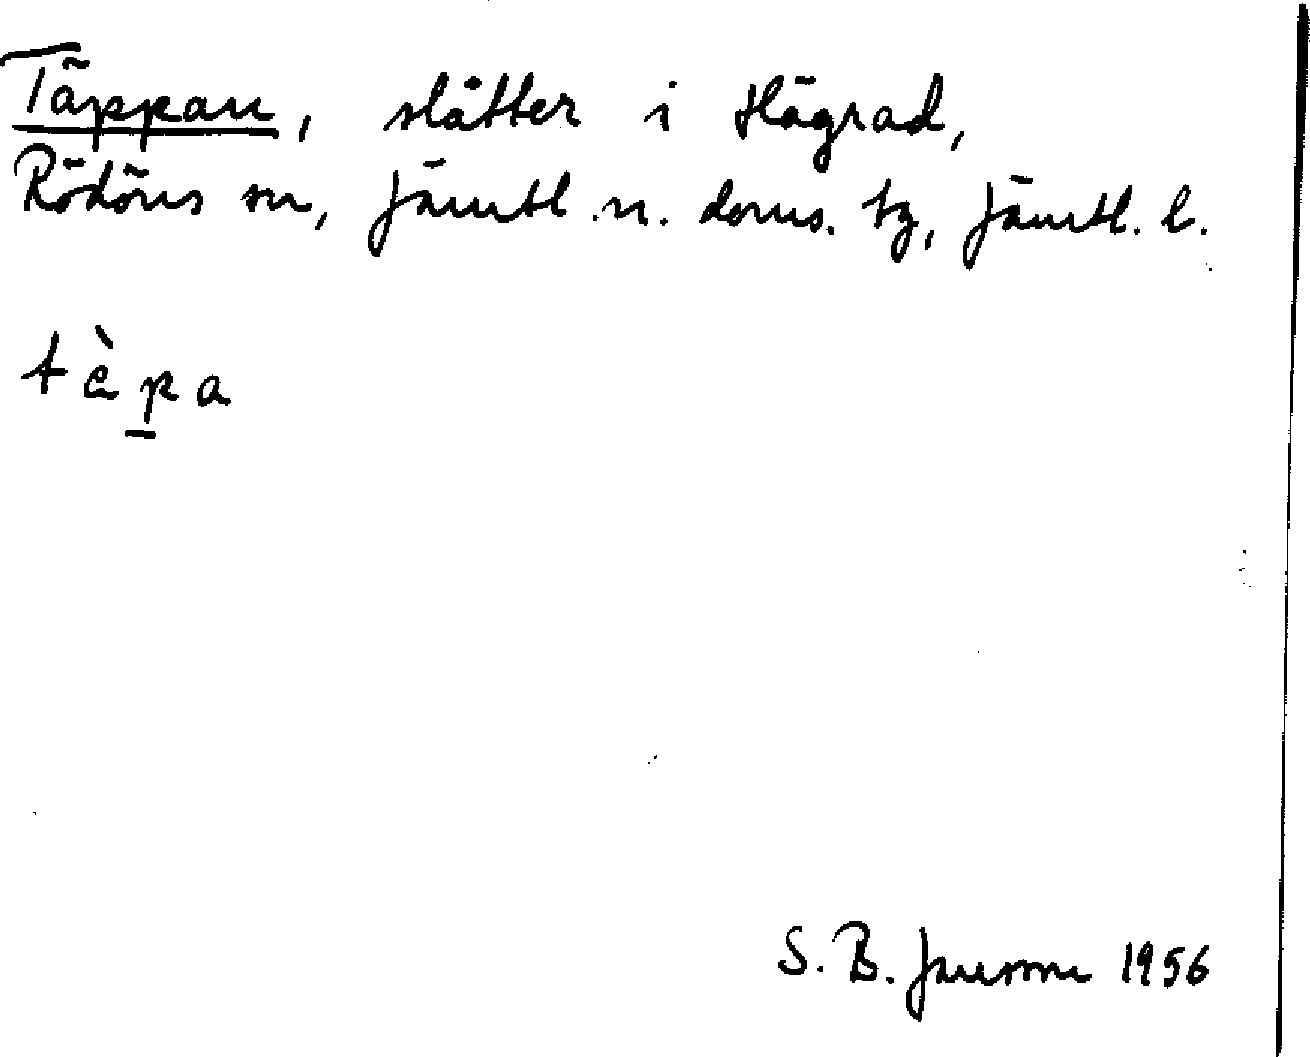 Täppan, slåtter i Hägrad,
Rödöns sn, Jämtl. n. doms. tg, Jämtl. l.
tàpa
S. B. Jansson 1956